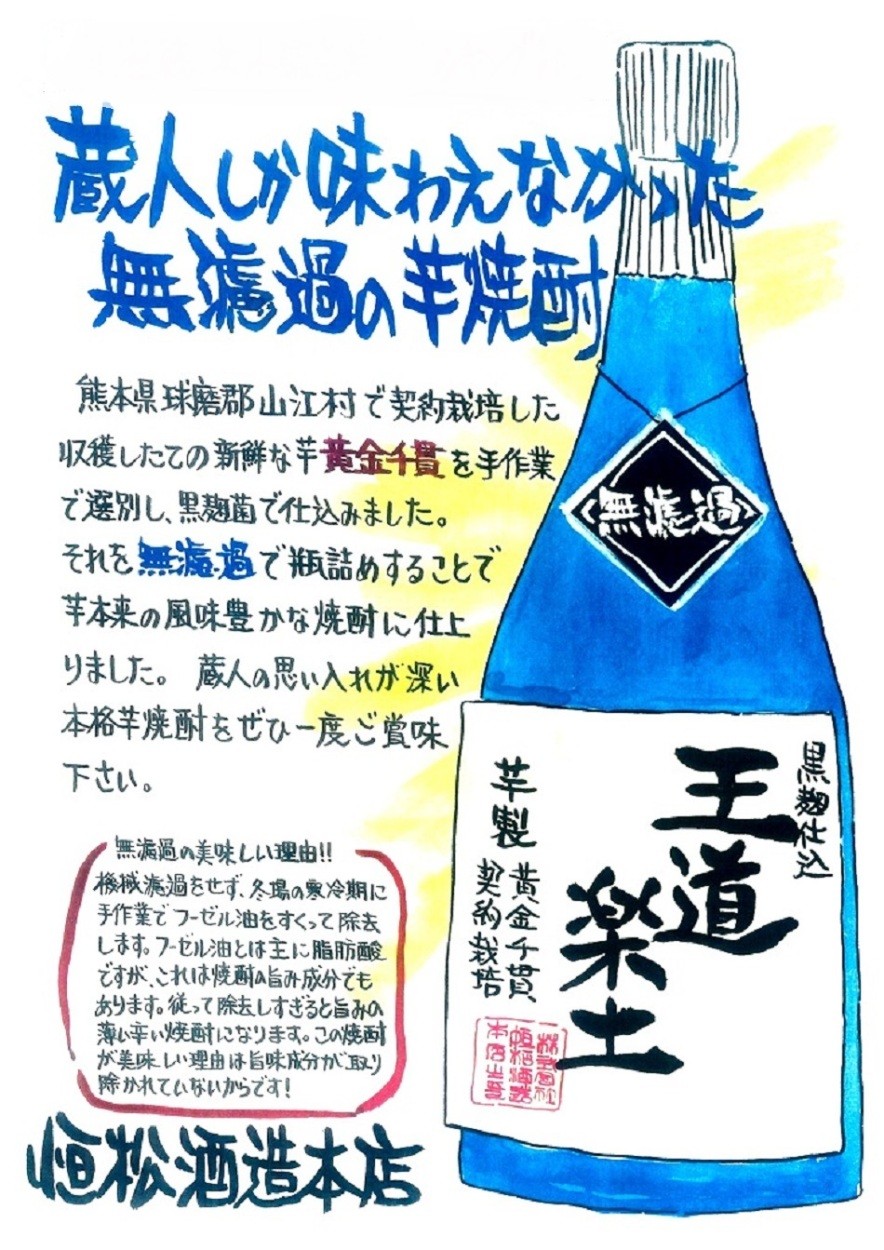 蔵人しか味わえなかった
無濾過の芋焼酎
熊本県球磨郡山江村で契約栽培した
収穫したての新鮮な芋黄金千貫を手作業
で選別し、黒麹菌で仕込みました。
それを無濾過で瓶詰めすることで
芋本来の風味豊かな焼酎に仕上
りました。 蔵人の思い入れが深い
本格芋焼酎をぜひ一度ご賞味
下さい。
無濾過の美味しい理由!!
機械濾過をせず、冬場の寒冷期に
手作業でフーゼル油をすくって除去
します。フーゼル油とは主に脂肪酸
ですが、これは焼酎の旨み成分でも
あります。従って除去しすぎると旨みの
薄い辛い焼酎になります。この焼酎
が美味しい理由は旨味成分が取り
除かれていないからです!
恒松酒造本店
無濾過
黒麹仕込
王道
楽土
芋製
黄金千貫
契約栽培
株式会社
恒松酒造
本店生産